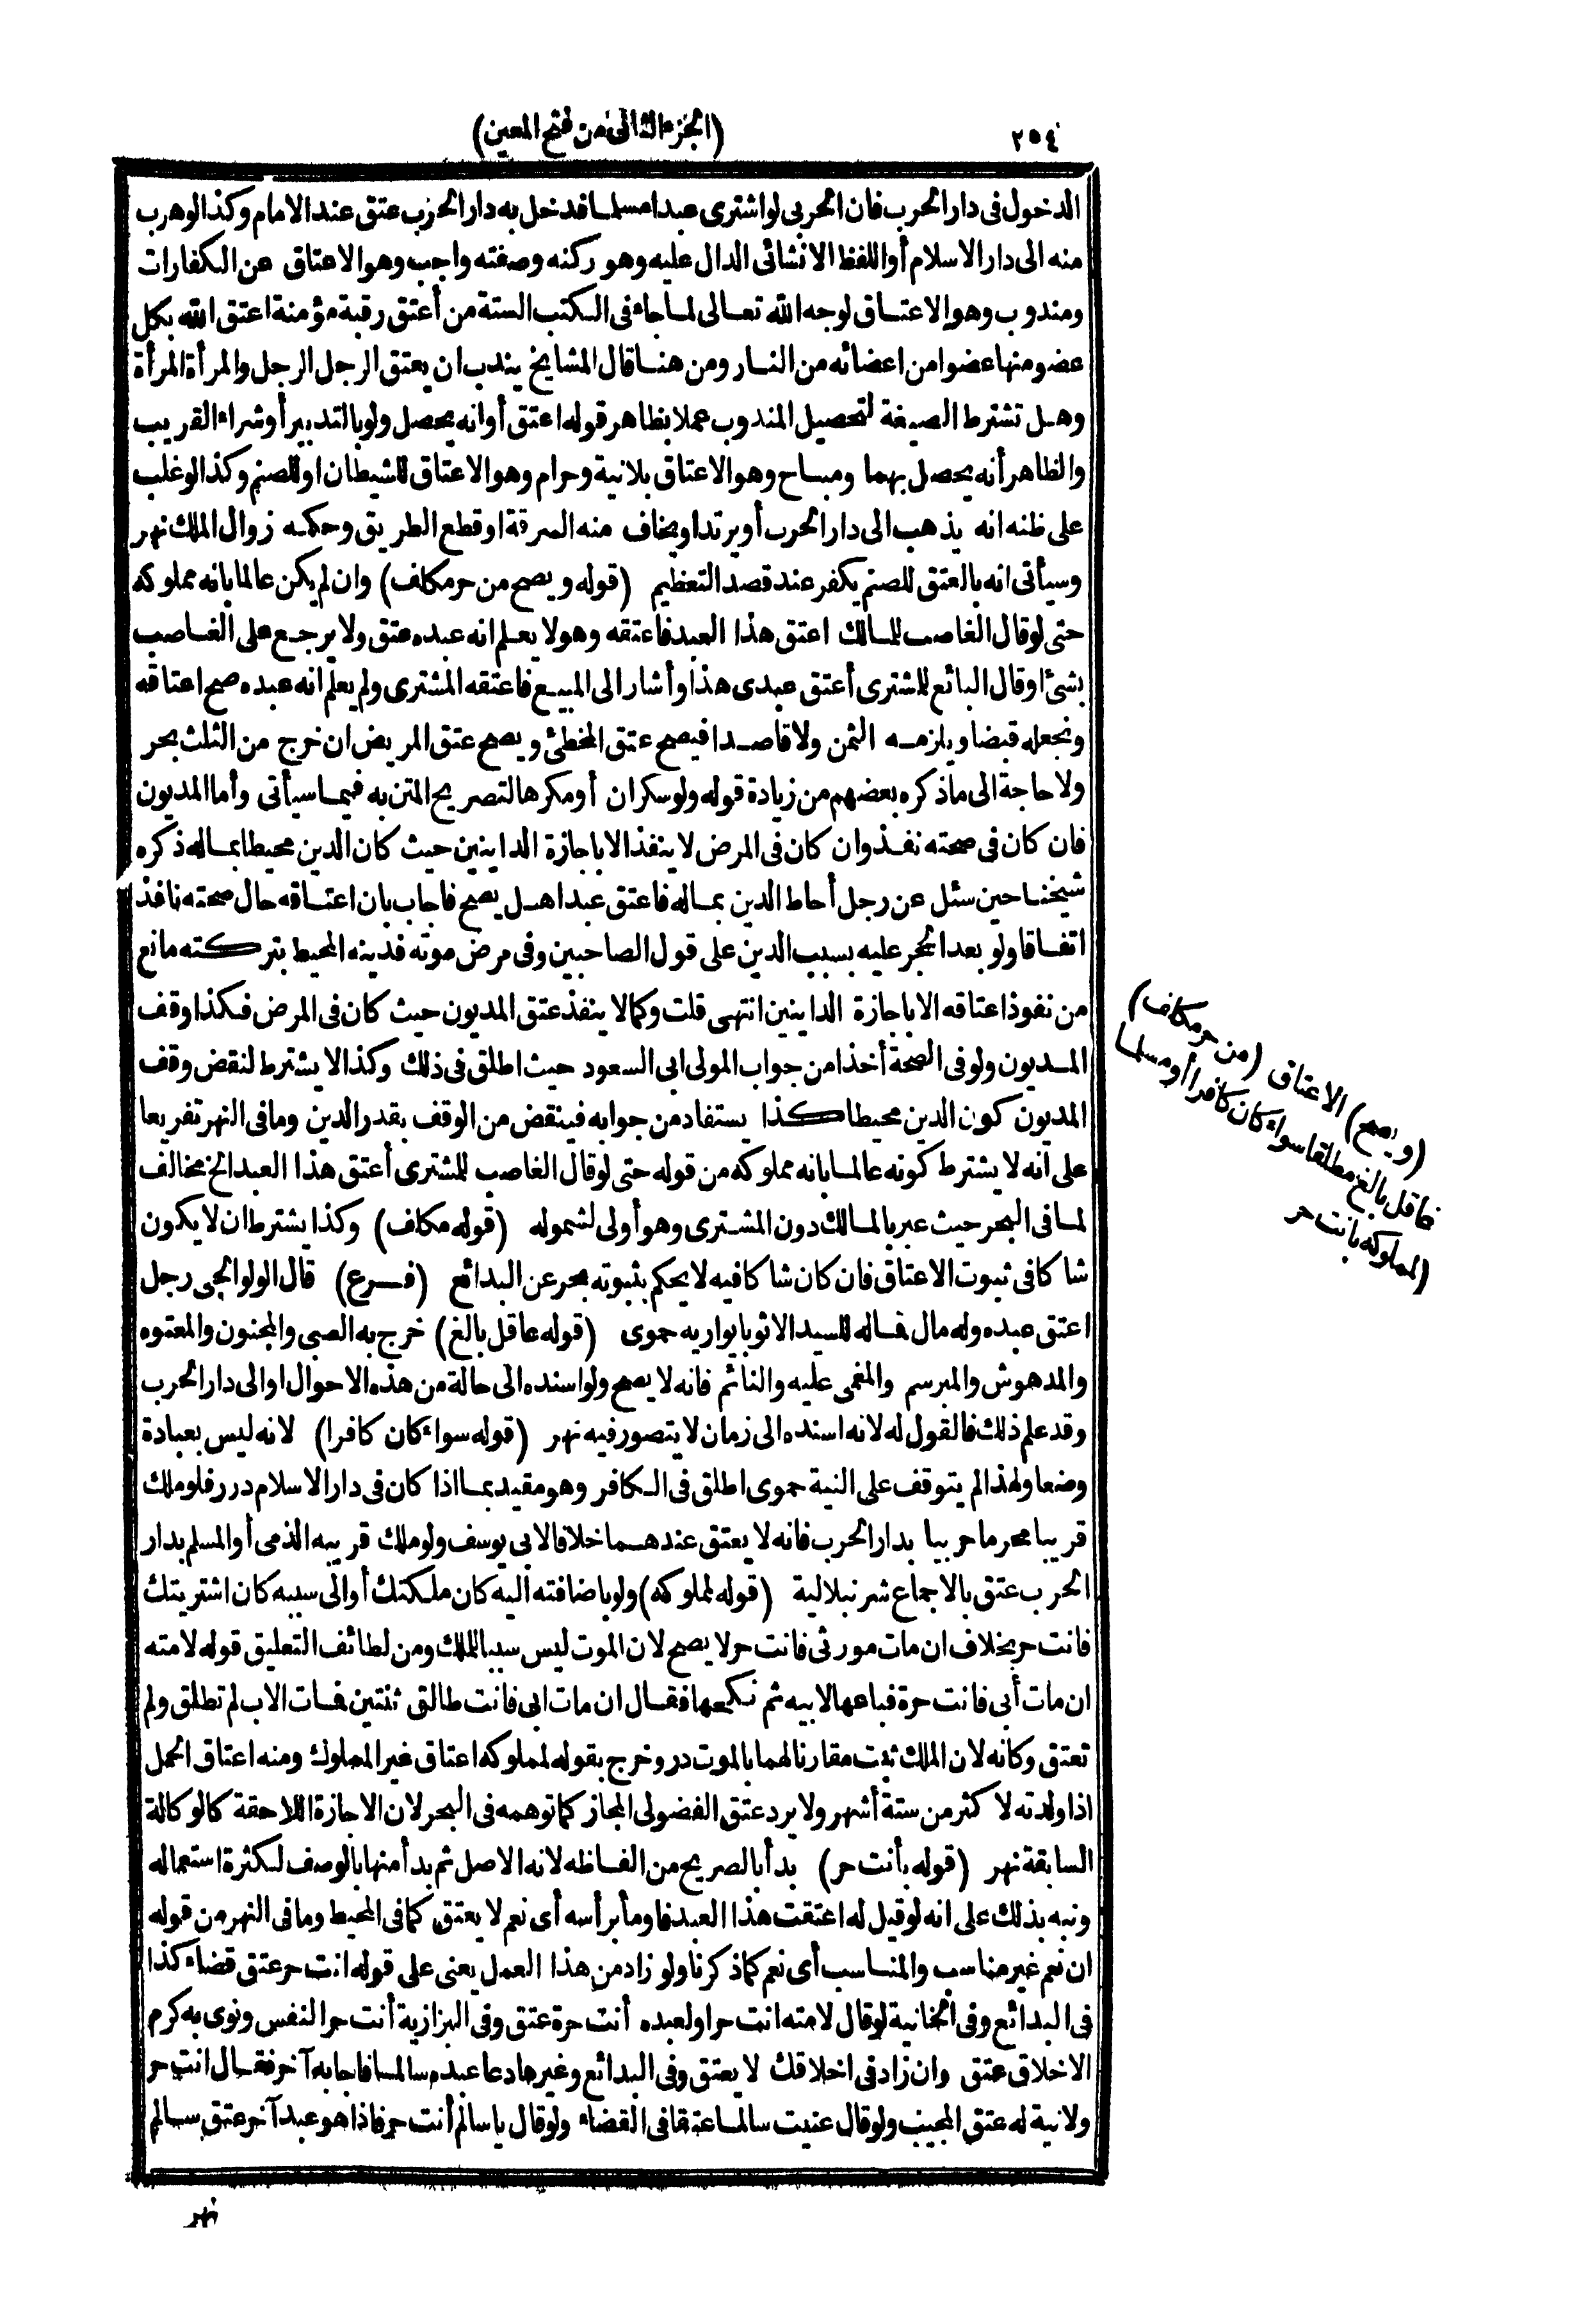 ٢٥٤
(الجزء الثاني من فتح المعين)
الدخول فى دار الحرب فان الحربى لو اشترى عبدا مسلما فدخل به دار الحرب عتق عند الامام وكذا لو هرب
منه الى دار الاسلام أو اللفظ الانشائى الدال عليه وهو ركنه وصفته واجب وهو الاعتاق عن الكفارات
ومندوب وهو الاعتاق لوجه الله تعالى لما جاء فى الكتب الستة من أعتق رقبة مؤمنة اعتق الله بكل
عضو منها عضوا من اعضائه من النار ومن هنا قال المشايخ يندب ان يعتق الرجل الرجل والمرأة المرأة
وهل تشترط الصيغة لتحصيل المندوب عملا بظاهر قوله اعتق أو انه يحصل ولو بالتدبير أو شراء القريب
والظاهر أنه يحصل بهما ومباح وهو الاعتاق بلا نية وحرام وهو الاعتاق للشيطان او للصنم وكذا لو غلب
على ظنه انه يذهب الى دار الحرب أو يرتد او يخاف منه السرقة او قطع الطريق وحكمه زوال الملك نهر
وسيأتى انه بالعتق للصنم يكفر عند قصد التعظيم (قوله ويصح من حر مكلف) وان لم يكن عالما بانه مملوكه
حتى لو قال الغاصب للمالك اعتق هذا العبد فاعتقه وهو لا يعلم انه عبده عتق ولا يرجع على الغاصب
بشئ او قال البائع للمشترى أعتق عبدى هذا وأشار الى المبيع فاعتقه المشترى ولم يعلم انه عبده صح اعتاقه
ونجعله قبضا ويلزمه الثمن ولا قاصدا فيصح عتق المخطئ ويصح عتق المريض ان خرج من الثلث بحر
ولا حاجة الى ما ذكره بعضهم من زيادة قوله ولو سكران أو مكرها لتصريح المتن به فيما سيأتى وأما المديون
فان كان فى صحته نفذ وان كان فى المرض لا ينفذ الا باجازة الداينين حيث كان الدين محيطا بماله ذكره
شيخنا حين سئل عن رجل أحاط الدين بماله فاعتق عبدا هل يصح فاجاب بان اعتاقه حال صحته نافذ
اتفاقا ولو بعد الحجر عليه بسبب الدين على قول الصاحبين وفى مرض موته فدينه المحيط بتركته مانع
من نفوذ اعتاقه الا باجازة الداينين انتهى قلت وكما لا ينفذ عتق المديون حيث كان فى المرض فكذا وقف
المديون ولو فى الصحة أخذا من جواب المولى ابى السعود حيث اطلق فى ذلك وكذا لا يشترط لنقض وقف
المديون كون الدين محيطا كذا يستفاد من جوابه فينقض من الوقف بقدر الدين وما فى النهر تفريعا
على انه لا يشترط كونه عالما بانه مملوكه من قوله حتى لو قال الغاصب للمشترى أعتق هذا العبد الخ مخالف
لما فى البحر حيث عبر بالمالك دون المشترى وهو أولى لشموله (قوله مكلف) وكذا يشترط ان لا يكون
شاكا فى ثبوت الاعتاق فان كان شاكا فيه لا يحكم بثبوته بحر عن البدائع (فرع) قال الولوالجى رجل
اعتق عبده وله مال فماله للسيد الا ثوبا يواريه حموى (قوله عاقل بالغ) خرج به الصبى والمجنون والمعتوه
والمدهوش والمبرسم والمغمى عليه والنائم فانه لا يصح ولو اسنده الى حالة من هذه الاحوال او الى دار الحرب
وقد علم ذلك فالقول له لانه اسنده الى زمان لا يتصور فيه نهر (قوله سواء كان كافرا) لانه ليس بعبادة
وضعا ولهذا لم يتوقف على النية حموى اطلق فى الكافر وهو مقيد بما اذا كان فى دار الاسلام درر فلو ملك
قريبا محرما حربيا بدار الحرب فانه لا يعتق عندهما خلافا لابى يوسف ولو ملك قريبه الذمى أو المسلم بدار
الحرب عتق بالاجماع شرنبلالية (قوله لمملوكه) ولو باضافته اليه كان ملكتك أو الى سببه كان اشتريتك
فانت حر بخلاف ان مات مورثى فانت حر لا يصح لان الموت ليس سببا للملك ومن لطائف التعليق قوله لامته
ان مات أبى فانت حرة فباعها لابيه ثم نكحها فقال ان مات ابى فانت طالق ثنتين فمات الاب لم تطلق ولم
تعتق وكانه لان الملك ثبت مقارنا لهما بالموت در وخرج بقوله لمملوكه اعتاق غير المملوك ومنه اعتاق الحمل
اذا ولدته لا كثر من ستة أشهر ولا يرد عتق الفضولى المجاز كما توهمه فى البحر لان الاجازة اللاحقة كالوكالة
السابقة نهر (قوله بأنت حر) بدأ بالصريح من الفاظه لانه الاصل ثم بدأ منها بالوصف لكثرة استعماله
ونبه بذلك على انه لو قيل له اعتقت هذا العبد فاومأ برأسه أى نعم لا يعتق كما فى المحيط وما فى النهر من قوله
ان نعم غير مناسب والمناسب أى نعم كما ذكرنا ولو زاد من هذا العمل يعنى على قوله انت حر عتق قضاء كذا
فى البدائع وفى الخانية لو قال لامته انت حر او لعبده أنت حرة عتق وفى البزازية أنت حر النفس ونوى به كرم
الاخلاق عتق وان زاد فى اخلاقك لا يعتق وفى البدائع وغيرها دعا عبده سالما فاجابه آخر فقال انت حر
ولا نية له عتق المجيب ولو قال عنيت سالما عتقا فى القضاء ولو قال يا سالم أنت حر فاذا هو عبد آخر عتق سالم
نهر
(ويصح) الاعتاق (من حر مكلف)
عاقل بالغ مطلقا سواء كان كافرا أو مسلما
(لمملوكه بانت حر